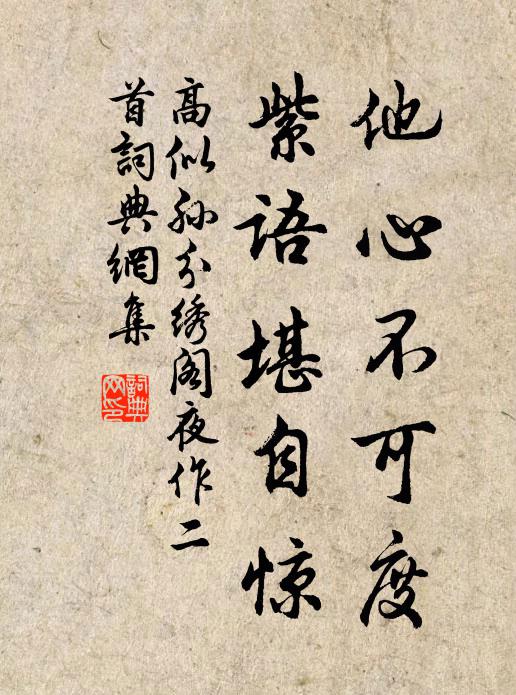 他心不可度
紫語堪自惊
高似孙分绣阁夜作二
首詞典網集
詞典
网印